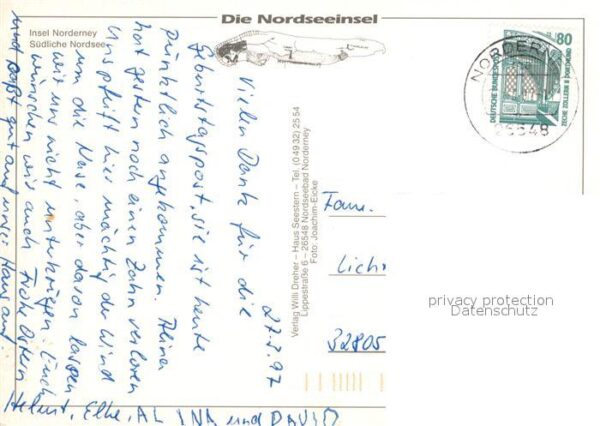 Die Nordseeinsel
Insel Norderney
Südliche Nordsee
80
DEUTSCHE BUNDESPOST
ZECHE ZOLLERN II DORTMUND
NORDERNEY
26548
27.3.97
Vielen Dank für die
Geburtstagspost, sie ist heute
pünktlich angekommen. Alina
hat gestern noch einen Zahn verloren
Uns pfeift hier mächtig der Wind
um die Nase, aber davon lassen
wir uns nicht unterkriegen. Euch
wünschen wir auch Frohe Ostern
und paßt gut auf unser Haus auf.
Helmut, Elke, ALINA und DAVID
Verlag Willi Dreher – Haus Seestern – Tel. (0 49 32) 25 54
Lippestraße 6 – 26548 Nordseebad Norderney
Foto: Joachim-Eicke
Fam.
Licht
32805
privacy protection
Datenschutz